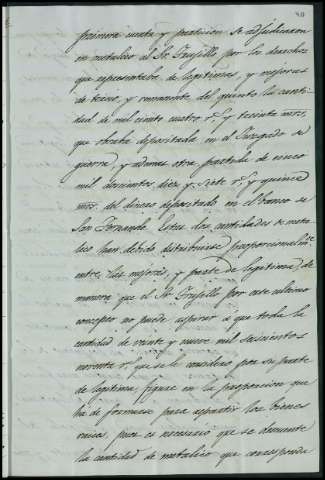 40
primera cuenta y particion se adjudicaron
en metalico al Sr. Trujillo por los derechos
que representaba de legitimas, y mejoras
de tercio, y remanente del quinto la canti-
dad de mil ciento cuatro rs. y treinta mrs.
que estaba depositada en el Juzgado de
guerra, y ademas otra partida de cinco
mil doscientos diez y siete rs. y quince
mrs. del dinero depositado en el banco de
San Fernando. Estas dos cantidades de meta-
lico han debido distribuirse proporcionalmte.
entre las mejoras, y parte de legitima, de
manera que el Sr. Trujillo por este ultimo
concepto no puede aspirar á que toda la
cantidad de veinte y nueve mil seiscientos
noventa rs. que se le consideró por su parte
de legitima, figure en la proporcion que
ha de formarse para repartir los bienes
raices, pues es necesario que se descuente
la cantidad de metalico que corresponde